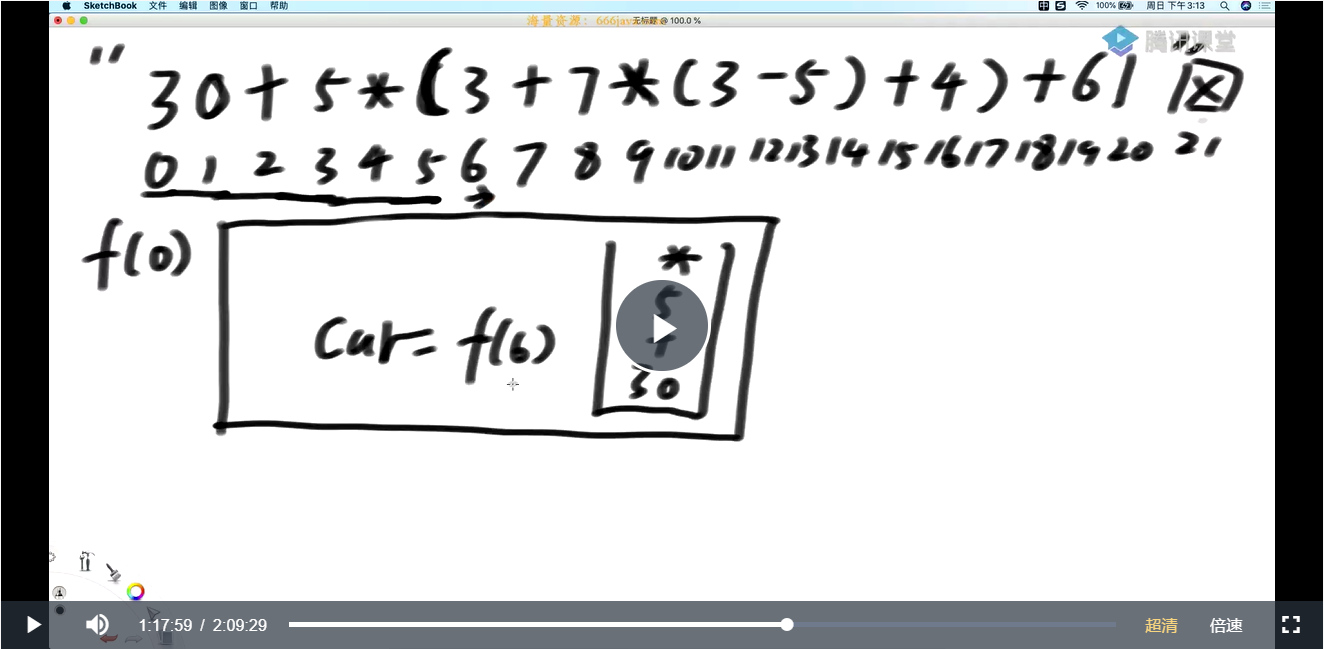 SketchBook 文件 编辑 图像 窗口 帮助 100% 周日 下午3:13
海量资源：666java 无标题 @ 100.0 %
腾讯课堂
"30+5*(3+7*(3-5)+4)+61"
0 1 2 3 4 5 6 7 8 9 10 11 12 13 14 15 16 17 18 19 20 21
f(0)
*
5
+
Cur= f(6)
30
1:17:59 / 2:09:29 超清 倍速